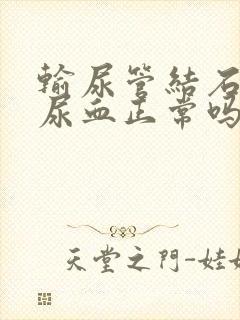 輸尿管結石
尿血正常吗
天堂之門-娃娃